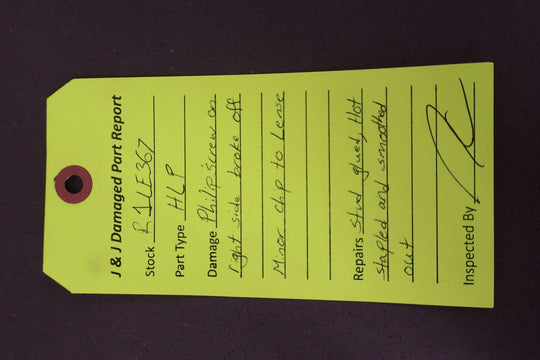 J & J Damaged Part Report
Stock R1LE367
Part Type HLP
Damage Philip screw on
right side broke off
Minor chp to Lense
Repairs Stud glued, Hot
stapled and smoothed
out
Inspected By